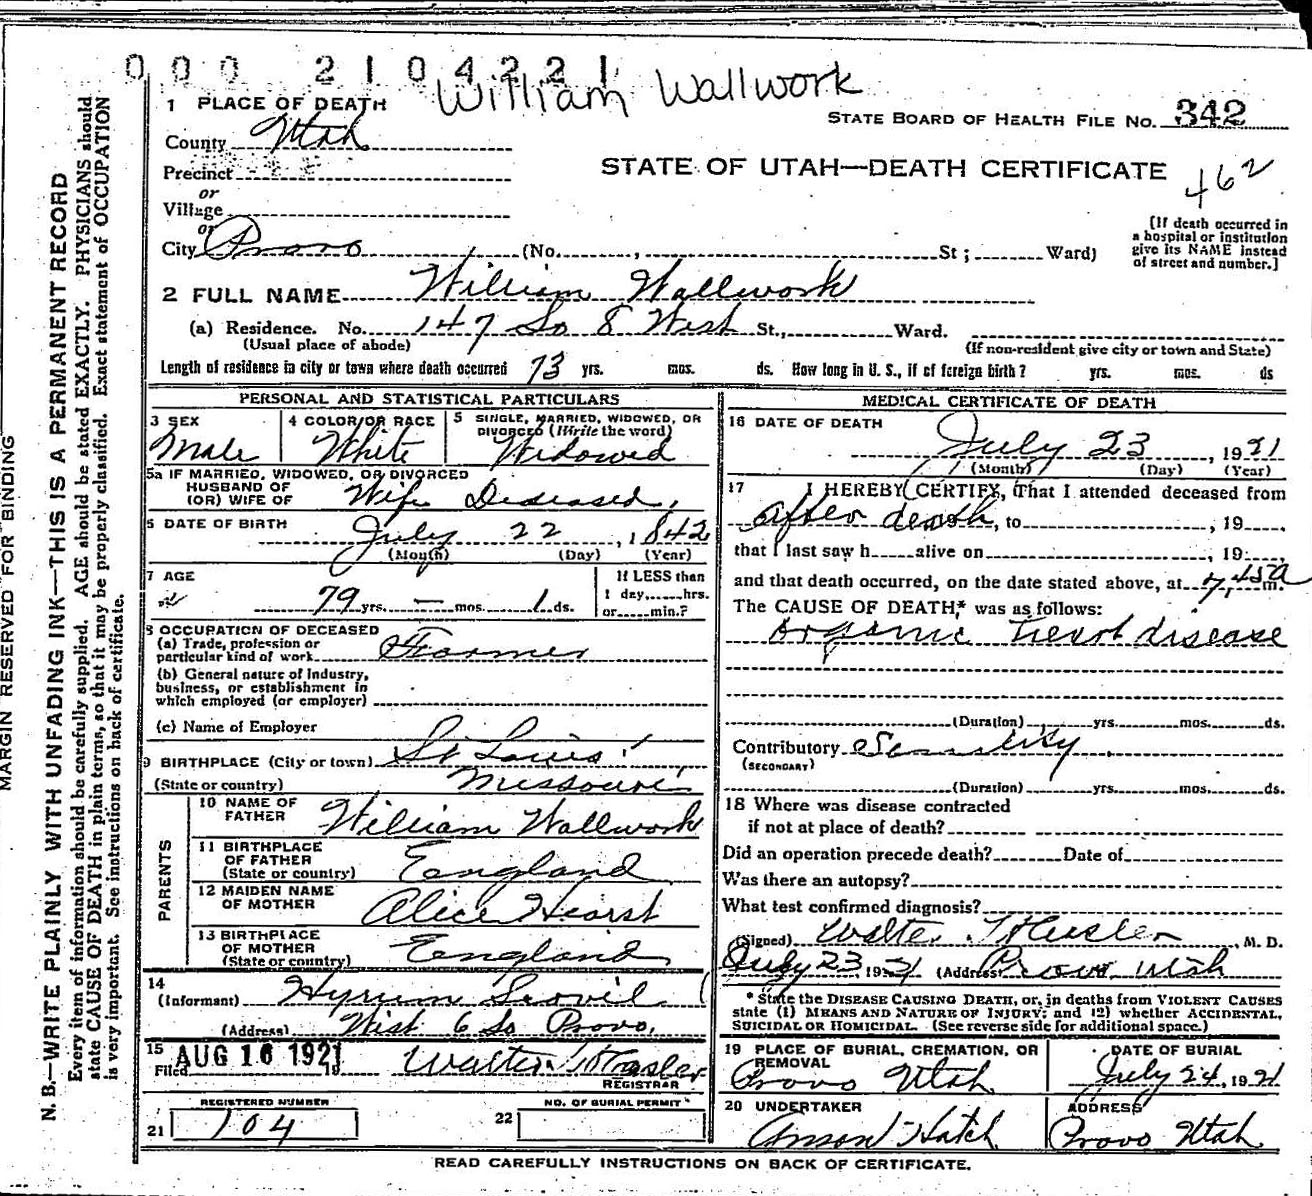 000 2104221
William Wallwork
1 PLACE OF DEATH
STATE BOARD OF HEALTH FILE NO. 342
County Utah
Precinct
STATE OF UTAH—DEATH CERTIFICATE
462
or
Village
or
City Provo (No. , St ; Ward)
[If death occurred in
a hospital or institution
give its NAME instead
of street and number.]
2 FULL NAME William Wallwork
(a) Residence. No. 147 So 8 West St., Ward.
(Usual place of abode)
(If non-resident give city or town and State)
Length of residence in city or town where death occurred 73 yrs. mos. ds. How long in U. S., if of foreign birth? yrs. mos. ds
PERSONAL AND STATISTICAL PARTICULARS
3 SEX
Male
4 COLOR/OR RACE
White
5 SINGLE, MARRIED, WIDOWED, OR
DIVORCED (Write the word)
Widowed
5a IF MARRIED, WIDOWED, OR DIVORCED
HUSBAND OF
(OR) WIFE OF Wife Deceased,
6 DATE OF BIRTH
July 22, 1842
(Month) (Day) (Year)
7 AGE
79 yrs. — mos. 1 ds.
If LESS than
1 day, hrs.
or min.?
8 OCCUPATION OF DECEASED
(a) Trade, profession or
particular kind of work Farmer
(b) General nature of Industry,
business, or establishment in
which employed (or employer)
(c) Name of Employer
9 BIRTHPLACE (City or town) St Louis
(State or country) Missouri
PARENTS
10 NAME OF
FATHER William Wallwork
11 BIRTHPLACE
OF FATHER
(State or country) England
12 MAIDEN NAME
OF MOTHER Alice Hearst
13 BIRTHPLACE
OF MOTHER
(State or country) England
14
(Informant) Hyrum Scovil
(Address) West 6 So Provo,
15
Filed AUG 16 1921 19
Walter T Hasler
REGISTRAR
REGISTERED NUMBER
21 104
NO. OF BURIAL PERMIT
22
MEDICAL CERTIFICATE OF DEATH
16 DATE OF DEATH
July 23, 1921
(Month) (Day) (Year)
17 I HEREBY CERTIFY, That I attended deceased from
after death, to , 19
that I last saw h alive on , 19
and that death occurred, on the date stated above, at 7,45a m.
The CAUSE OF DEATH,* was as follows:
Organic Heart disease
(Duration) yrs. mos. ds.
Contributory Senility
(SECONDARY)
(Duration) yrs. mos. ds.
18 Where was disease contracted
if not at place of death?
Did an operation precede death? Date of
Was there an autopsy?
What test confirmed diagnosis?
(Signed) Walter T Hasler, M. D.
July 23 1921 (Address Provo Utah
* State the DISEASE CAUSING DEATH, or, in deaths from VIOLENT CAUSES
state (1) MEANS AND NATURE OF INJURY; and (2) whether ACCIDENTAL,
SUICIDAL OR HOMICIDAL. (See reverse side for additional space.)
19 PLACE OF BURIAL, CREMATION, OR
REMOVAL
Provo Utah
DATE OF BURIAL
July 24, 1921
20 UNDERTAKER
Anson Hatch
ADDRESS
Provo Utah
READ CAREFULLY INSTRUCTIONS ON BACK OF CERTIFICATE.
MARGIN RESERVED FOR BINDING
N. B.—WRITE PLAINLY WITH UNFADING INK—THIS IS A PERMANENT RECORD
Every item of information should be carefully supplied. AGE should be stated EXACTLY. PHYSICIANS should
state CAUSE OF DEATH in plain terms, so that it may be properly classified. Exact statement of OCCUPATION
is very important. See instructions on back of certificate.